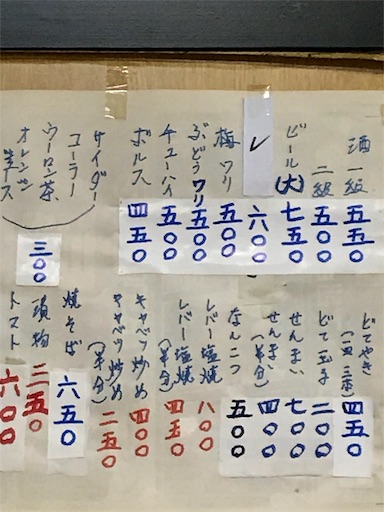 酒一級 五五〇
二級 五〇〇
ビール(大) 七五〇
レ 六〇〇
梅ワリ 五〇〇
ぶどうワリ 五〇〇
チューハイ 五〇〇
ボルス 四五〇
サイダー
コーラー
ウーロン茶
オレンジ
三〇〇
どてやき(一皿 三本) 四五〇
どて玉子 二〇〇
せんまい 七〇〇
せんまい(半分) 四〇〇
なんこつ 五〇〇
レバー塩焼 八〇〇
レバー塩焼(半分) 四五〇
キャベツ炒め 四〇〇
キャベツ炒め(半分) 二五〇
焼そば 六五〇
漬物 二五〇
トマト 六〇〇